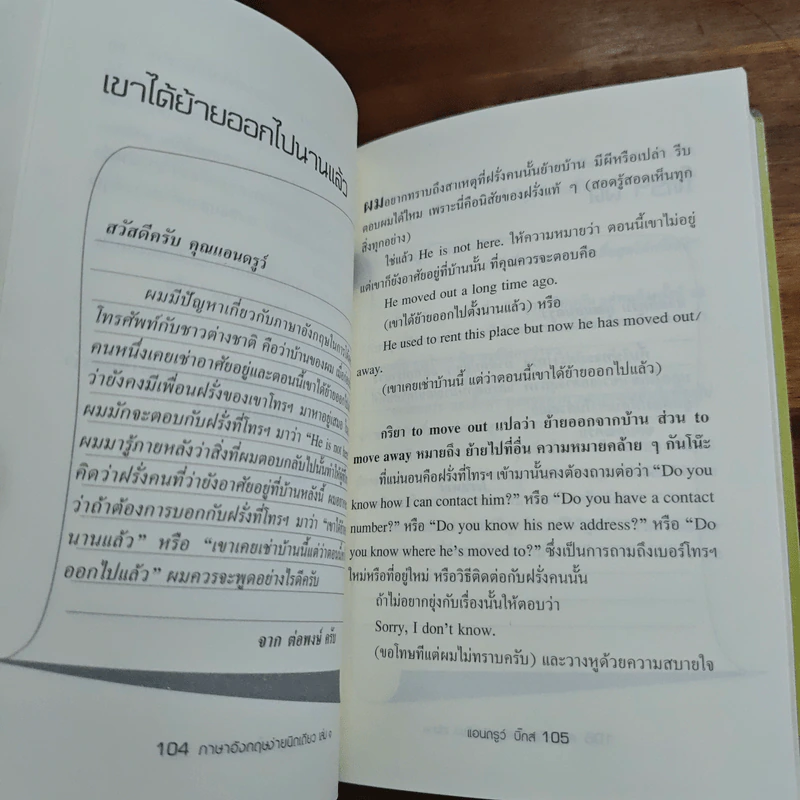 เขาได้ย้ายออกไปนานแล้ว
สวัสดีครับ คุณแอนดรูว์
ผมมีปัญหาเกี่ยวกับภาษาอังกฤษในการ
โทรศัพท์กับชาวต่างชาติ คือว่าบ้านของผม
คนหนึ่งเคยเช่าอาศัยอยู่และตอนนี้เขาได้ย้ายออก
ว่ายังคงมีเพื่อนฝรั่งของเขาโทรฯ มาหาอยู่เสมอ
ผมมักจะตอบกับฝรั่งที่โทรฯ มาว่า “He is not here
ผมมารู้ภายหลังว่าสิ่งที่ผมตอบกลับไปนั้นทำให้
คิดว่าฝรั่งคนที่ว่ายังอาศัยอยู่ที่บ้านหลังนี้
ว่าถ้าต้องการบอกกับฝรั่งที่โทรฯ มาว่า “เขาได้
นานแล้ว” หรือ “เขาเคยเช่าบ้านนี้แต่ว่าตอนนี้
ออกไปแล้ว” ผมควรจะพูดอย่างไรดีครับ
จาก ต่อพงษ์ ครับ
104 ภาษาอังกฤษง่ายนิดเดียว เล่ม
ผมอยากทราบถึงสาเหตุที่ฝรั่งคนนั้นย้ายบ้าน มีผีหรือเปล่า รีบ
ตอบผมได้ไหม เพราะนี่คือนิสัยของฝรั่งแท้ ๆ (สอดรู้สอดเห็นทุก
สิ่งทุกอย่าง)
ใช่แล้ว He is not here. ให้ความหมายว่า ตอนนี้เขาไม่อยู่
แต่เขาก็ยังอาศัยอยู่ที่บ้านนั้น ที่คุณควรจะตอบคือ
He moved out a long time ago.
(เขาได้ย้ายออกไปตั้งนานแล้ว) หรือ
He used to rent this place but now he has moved out/
away.
(เขาเคยเช่าบ้านนี้ แต่ว่าตอนนี้เขาได้ย้ายออกไปแล้ว)
กริยา to move out แปลว่า ย้ายออกจากบ้าน ส่วน to
move away หมายถึง ย้ายไปที่อื่น ความหมายคล้าย ๆ กันโน๊ะ
ที่แน่นอนคือฝรั่งที่โทรฯ เข้ามานั้นคงต้องถามต่อว่า “Do you
know how I can contact him?” หรือ “Do you have a contact
number?” หรือ “Do you know his new address?” หรือ “Do
you know where he’s moved to?” ซึ่งเป็นการถามถึงเบอร์โทรฯ
ใหม่หรือที่อยู่ใหม่ หรือวิธีติดต่อกับฝรั่งคนนั้น
ถ้าไม่อยากยุ่งกับเรื่องนั้นให้ตอบว่า
Sorry, I don’t know.
(ขอโทษทีแต่ผมไม่ทราบครับ) และวางหูด้วยความสบายใจ
แอนดรูว์ บิ๊กส์ 105